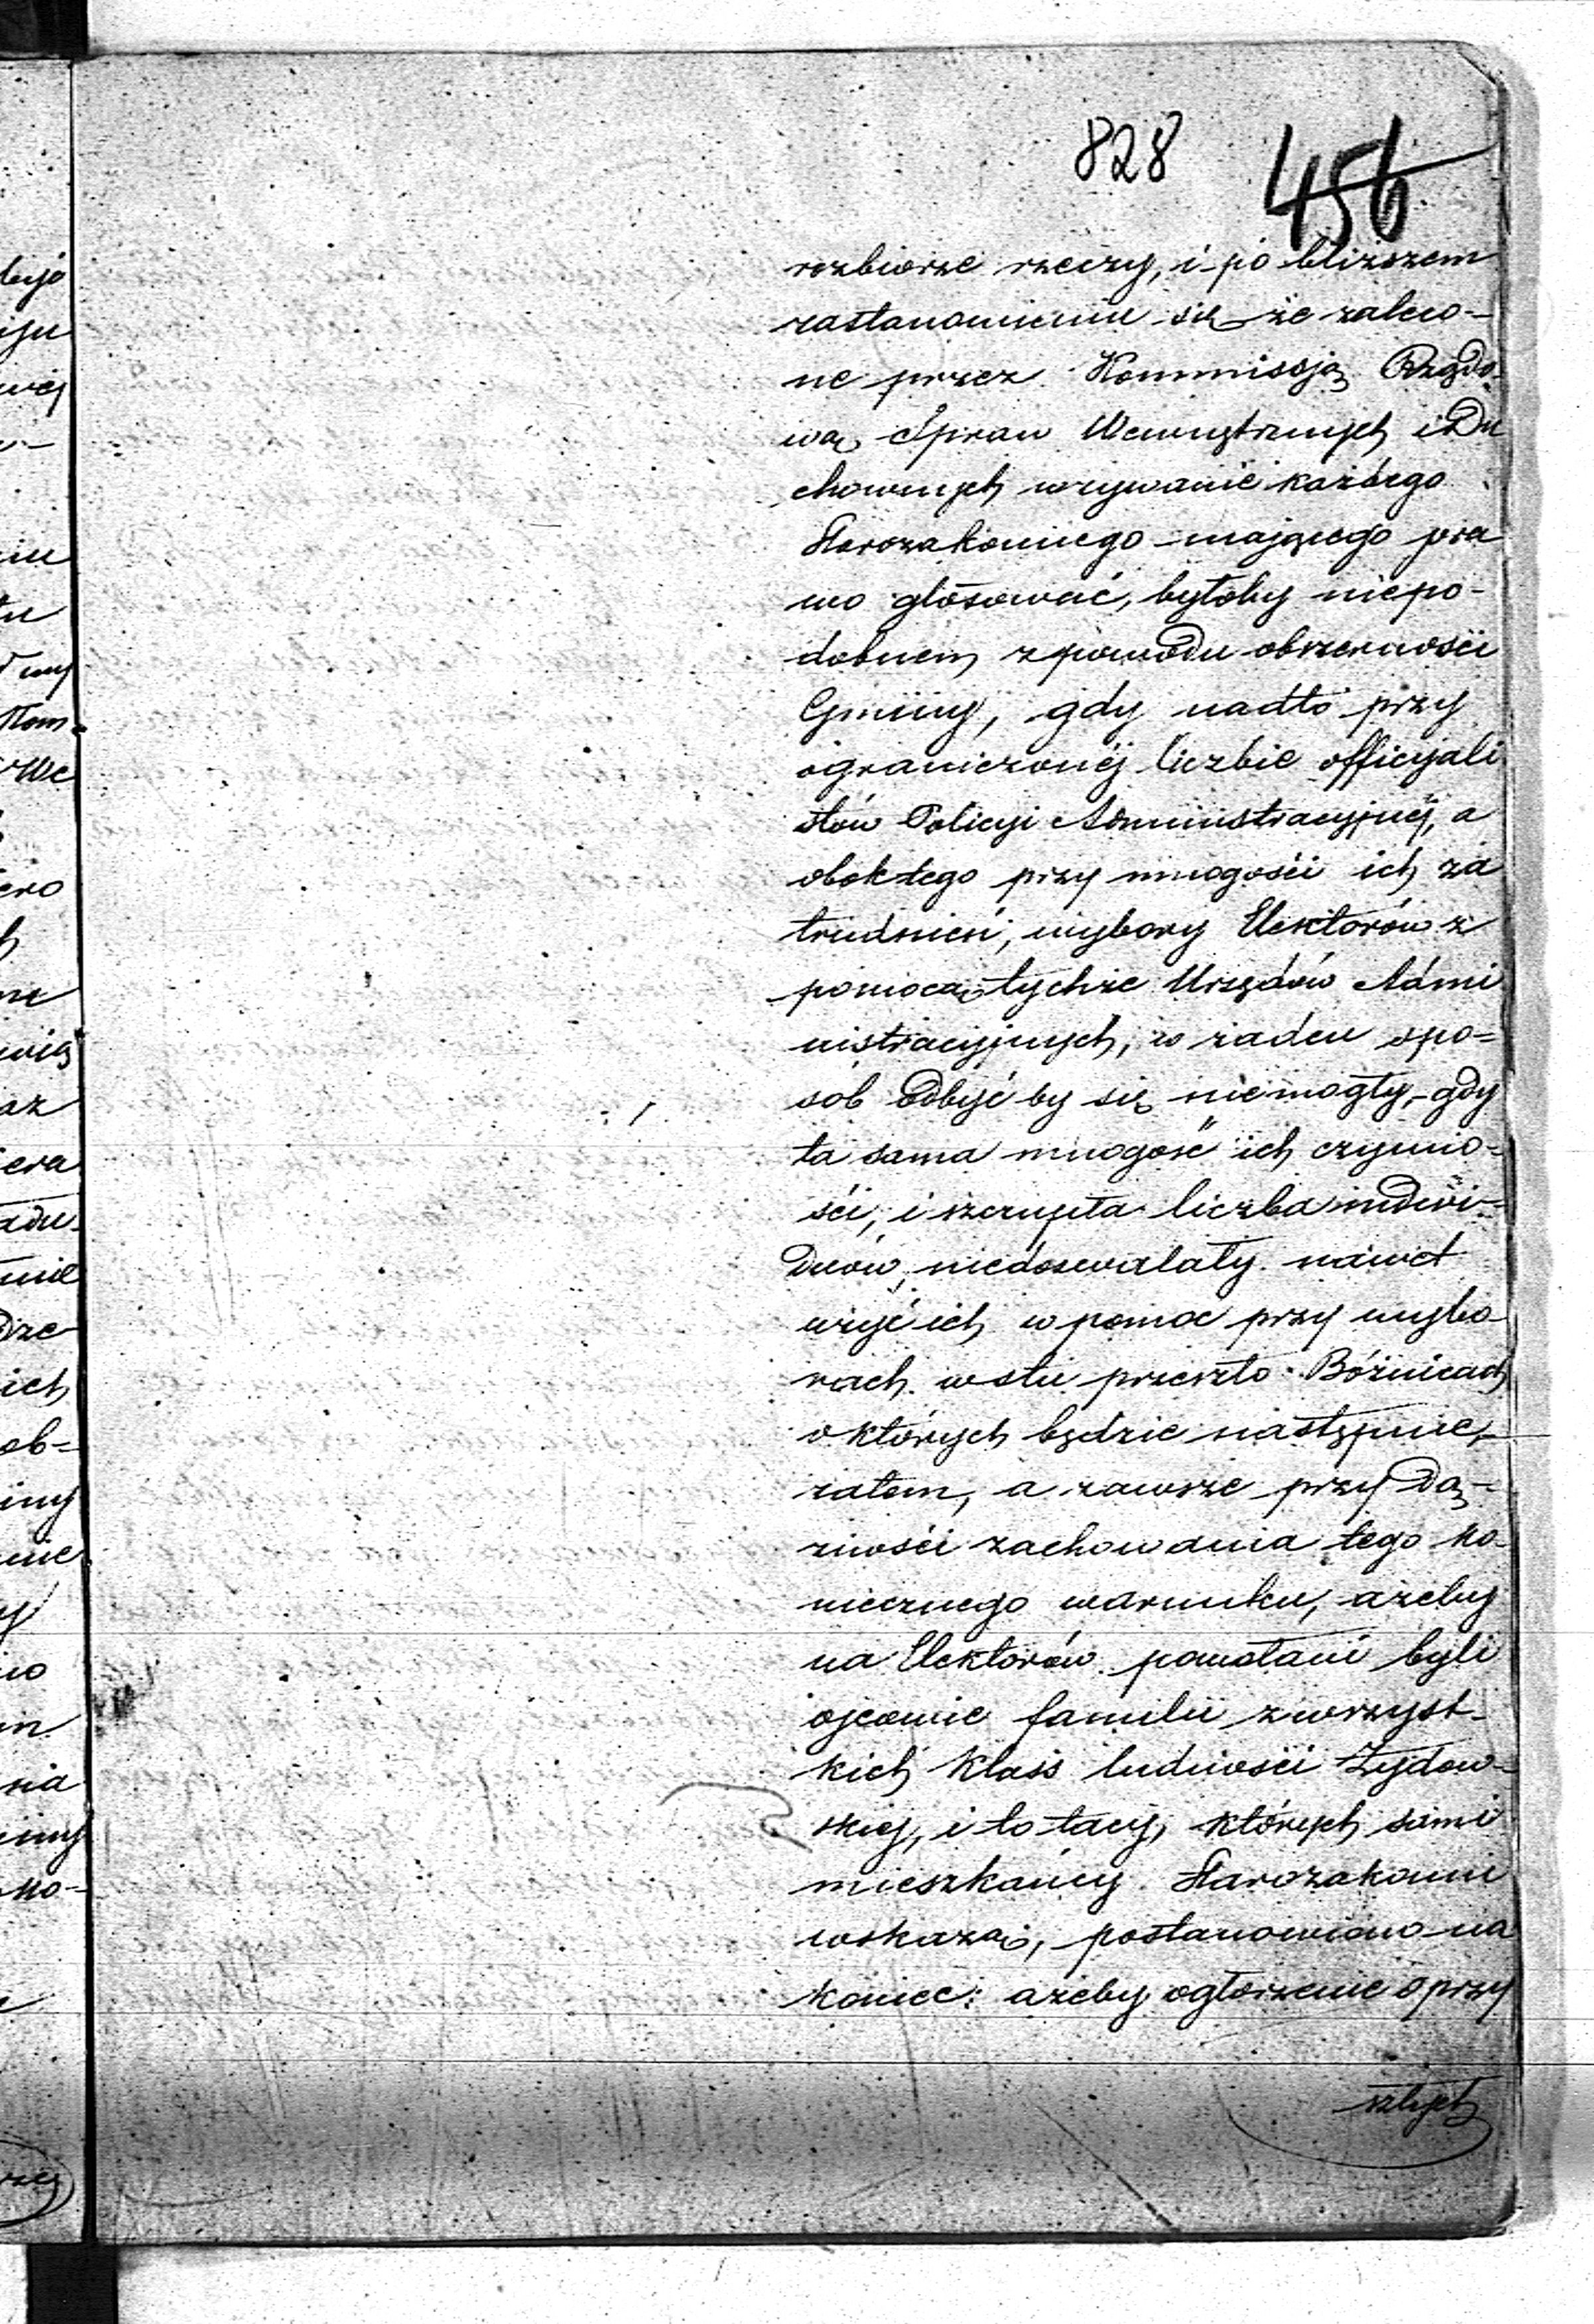 828 456
rozbiorze rzeczy, i po bliższem
zastanowieniu się że zaleco-
ne przez Kommissją Rządo-
wą Spraw Wewnętrznych i Du
chownych wzywanie każdego
Starozakonnego mającego pra
wo głosować, byłoby niepo-
dobnem z powodu obszerności
Gminy, gdy nadto przy
ograniczonéj liczbie officyali
stów Policyi Administracyjnéj, a
obok tego przy mnogości ich za
trudnień, wybory Elektorów z
pomocą tychże Urzędów Admi
nistracyjnych, w żaden spo-
sób odbyć by się niemogły, gdy
ta sama mnogość ich czynno-
ści, i szczupła liczba indivi-
duów, niedozwalały nawet
użyć ich w pomoc przy wybo-
rach w stu przeszło Bóżnicach
o których będzie następnie,
zatem, a zawsze przy dą-
żności zachowania tego ko-
niecznego warunku, ażeby
na Elektorów powołani byli
ojcowie familii z wszyst-
kich klass ludności Żydow-
skiej, i to tacy, których sami
mieszkańcy Starozakonni
wskażą, postanowiono na
koniec: ażeby ogłoszenie o przy
szłych